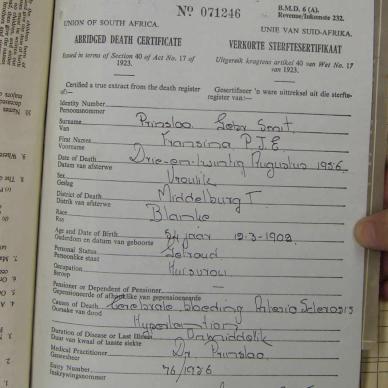 No 071246
B.M.D. 6 (A).
Revenue/Inkomste 232.
UNION OF SOUTH AFRICA.
UNIE VAN SUID-AFRIKA.
ABRIDGED DEATH CERTIFICATE
VERKORTE STERFTESERTIFIKAAT
Issued in terms of Section 40 of Act No. 17 of 1923.
Uitgereik kragtens artikel 40 van Wet No. 17 van 1923.
Certified a true extract from the death register of:—
Gesertifiseer 'n ware uittreksel uit die sterfteregister van:—
Identity Number
Persoonsnommer
Surname
Van
Prinsloo Gebr Smit
First Names
Voorname
Fransina P.J.E.
Date of Death
Datum van afsterwe
Drie-en-twintig Augustus 1956
Sex
Geslag
Vroulik
District of Death
Distrik van afsterwe
Middelburg T.
Race
Ras
Blanke
Age and Date of Birth
Ouderdom en datum van geboorte
54 jaar 12-3-1902
Personal Status
Persoonlike staat
Getroud
Occupation
Beroep
Huisvrou
Pensioner or Dependent of Pensioner
Gepensioeneerde of afhanklik van gepensioeneerde
Causes of Death
Oorsake van dood
Cerebrale bloeding Arterio Sclerosis
Hypertention
Duration of Disease or Last Illness
Duur van kwaal of laaste siekte
Onmiddelik
Medical Practitioner
Geneesheer
Dr. Prinsloo
Entry Number
Inskrywingsnommer
76/1956